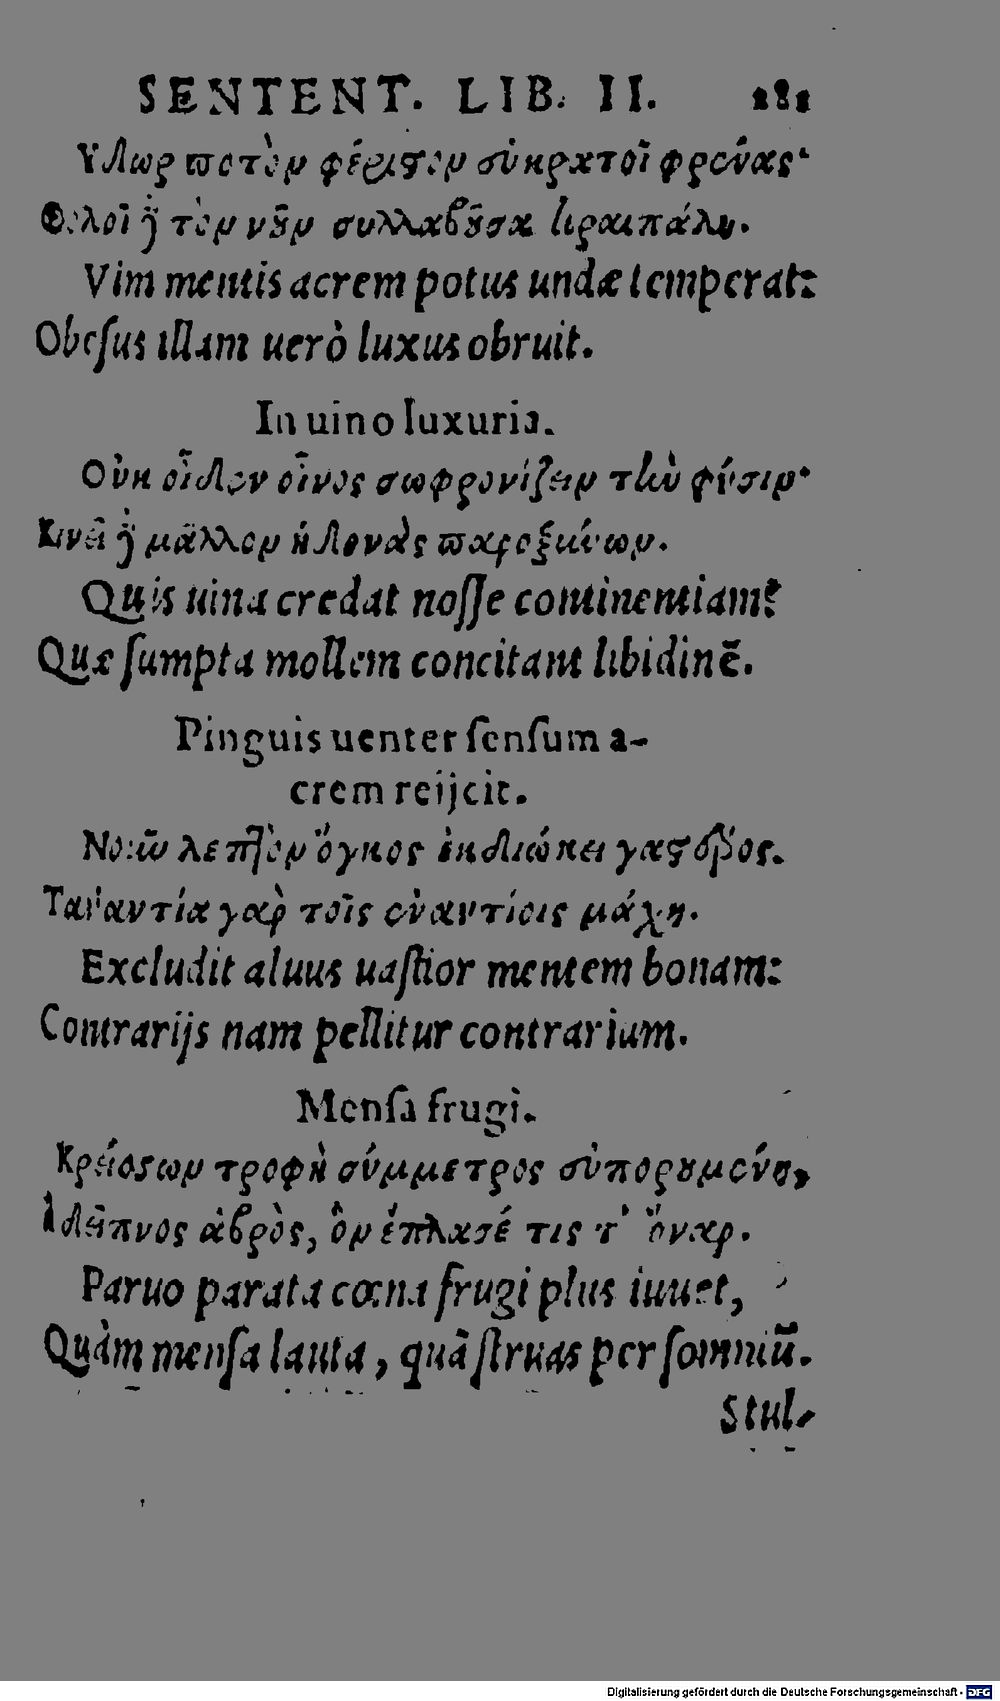 SENTENT. LIB. II. 181
Ὕδωρ ποτὸν φέριστον συγκρατοῖ φρένας·
Θολοῖ δὲ τὸν νοῦν συλλαβοῦσα κραιπάλη.
Vim mentis acrem potus undæ temperat:
Obesus illam uerò luxus obruit.
In uino luxuria.
Οὐκ οἶδεν οἶνος σωφρονίζειν τὴν φύσιν·
Κινεῖ δὲ μᾶλλον ἡδονὰς παροξύνων.
Quis uina credat nosſe continentiam?
Quæ ſumpta mollem concitant libidinē.
Pinguis uenter ſenſum a-
crem reijcit.
λεπτὸν ὄγκος ἐκδιώκει γαστρός.
Τἀναντία γὰρ τοῖς ἐναντίοις μάχη.
Excludit aluus uaſtior mentem bonam:
Contrarijs nam pellitur contrarium.
Menſa frugi.
Κρείσσων τροφὴ σύμμετρος εὐπορουμένη,
δεῖπνος ἁβρὸς, ὃν ἔπλασέ τις ὄναρ.
Paruo parata cœna frugi plus iuuet,
Quàm menſa lauta, quā ſtruas per ſomniū.
Stul-
Digitalisierung gefördert durch die Deutsche Forschungsgemeinschaft - DFG